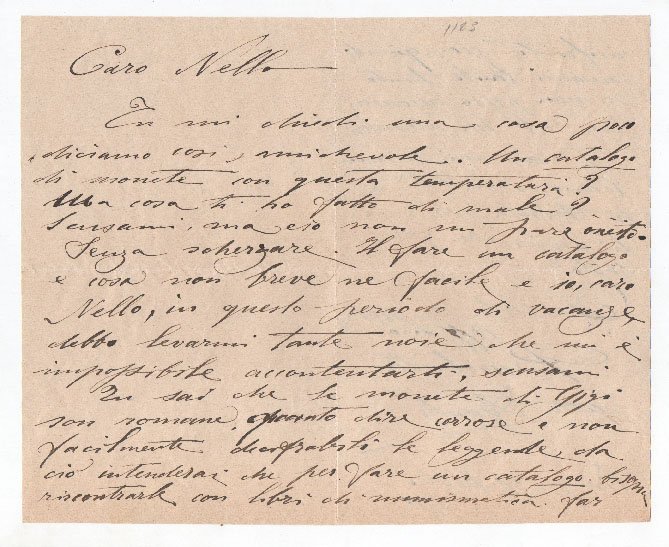 1123
Caro Nello
Tu mi chiedi una cosa poco
, diciamo così, amichevole. Un catalogo
di monete con questa temperatura?
Ma cosa ti ho fatto di male? ....
Scusami, ma ciò non mi pare onesto.
Senza scherzare. Il fare un catalogo
è cosa non breve ne facile e io, caro
Nello, in questo periodo di vacanze,
debbo levarmi tante noie che mi è
impossibile accontentarti, scusami
Tu sai che le monete di Gigi
son romane, dire corrose e non
facilmente le leggende, da
ciò intenderai che per fare un catalogo bisogna
riscontrarle con libri di numismatica. far